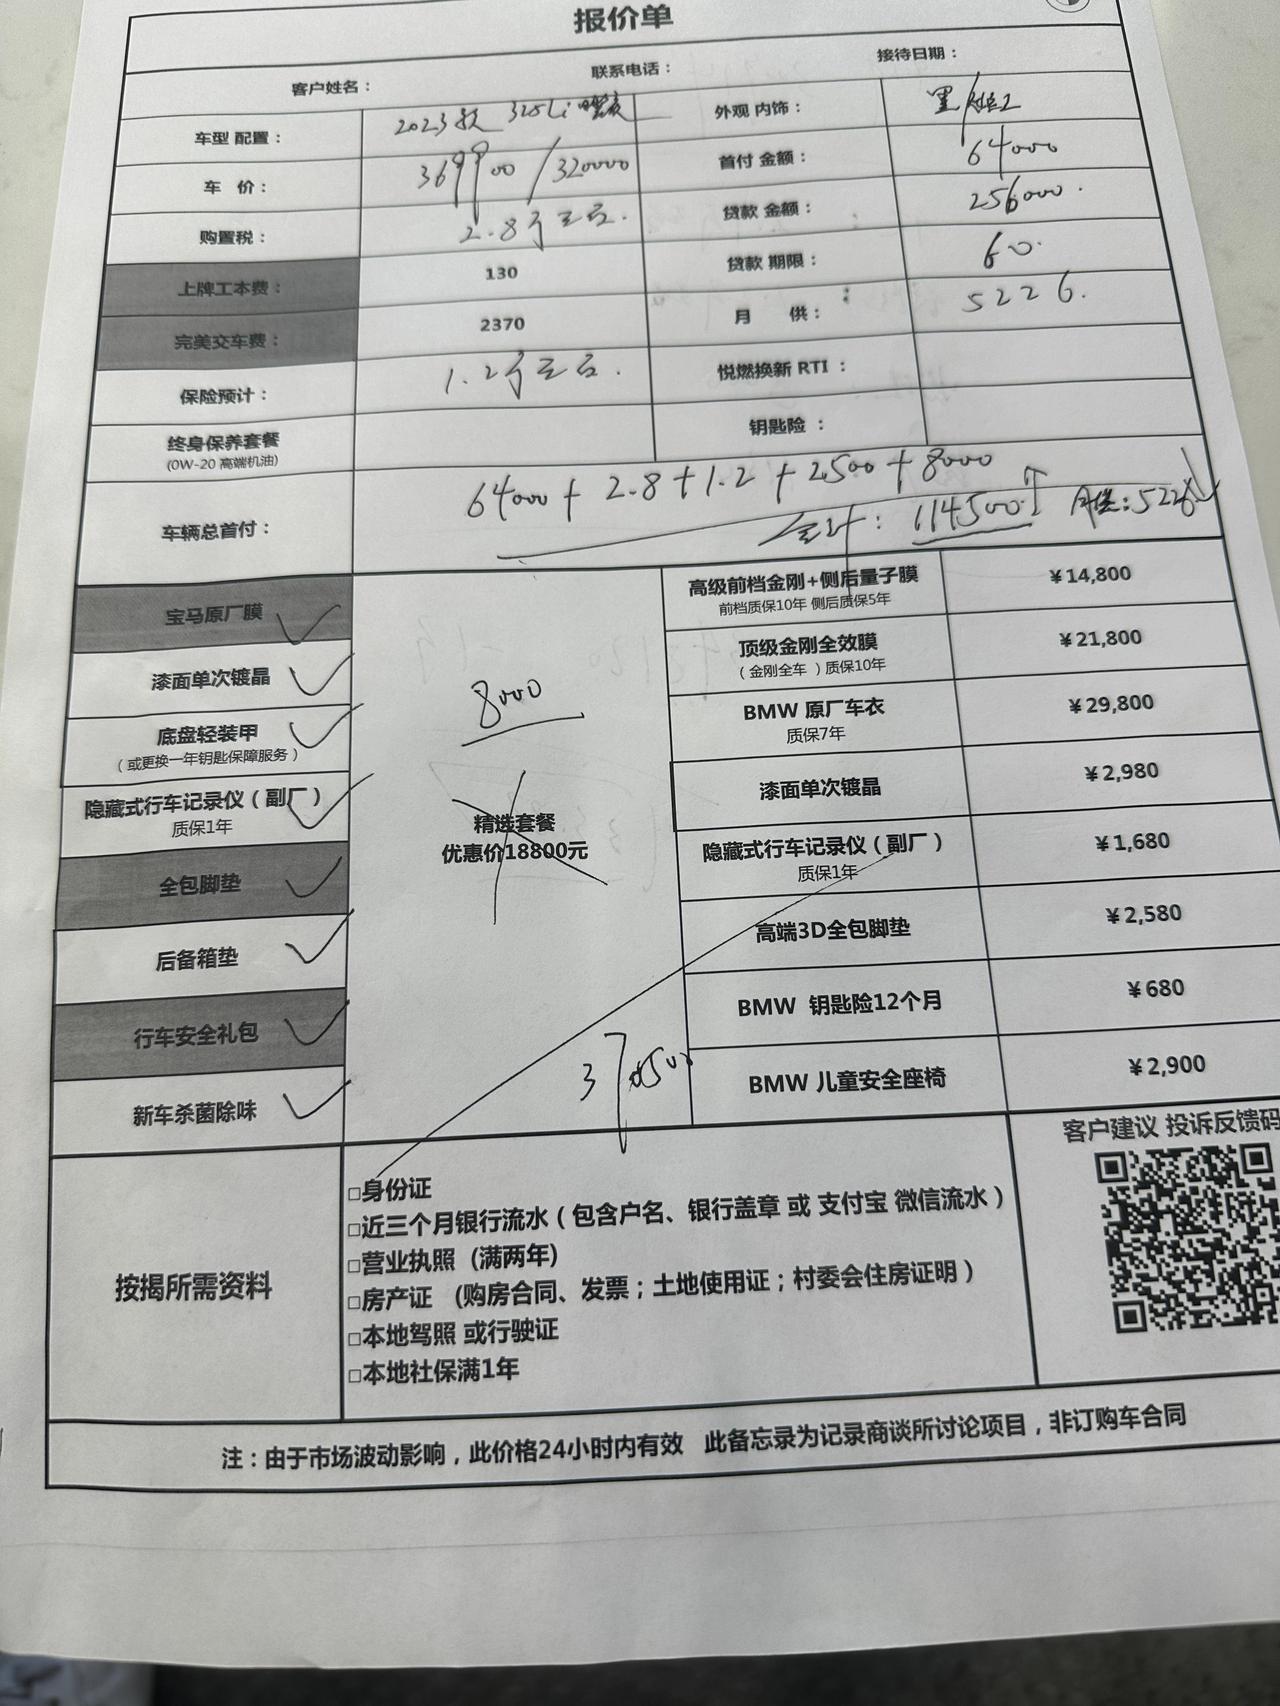 报价单
客户姓名： 联系电话： 接待日期：
车型 配置： 2023款 325Li 外观 内饰： 黑/
车 价： 369900/320000 首付 金额： 64000
购置税： 2.8万左右. 贷款 金额： 256000.
上牌工本费： 130 贷款 期限： 60.
完美交车费： 2370 月 供： 5226.
保险预计： 1.2万左右. 悦燃换新 RTI：
终身保养套餐 钥匙险：
(0W-20 高端机油)
车辆总首付： 64000 + 2.8 + 1.2 + 2500 + 8000
合计：114500 月供：5226
宝马原厂膜
漆面单次镀晶
底盘轻装甲
（或更换一年钥匙保障服务）
隐藏式行车记录仪（副厂）
质保1年
全包脚垫
后备箱垫
行车安全礼包
新车杀菌除味
8000
精选套餐
优惠价18800元
370500
高级前档金刚+侧后量子膜 ￥14,800
前档质保10年 侧后质保5年
顶级金刚全效膜 ￥21,800
（金刚全车）质保10年
BMW 原厂车衣 ￥29,800
质保7年
漆面单次镀晶 ￥2,980
隐藏式行车记录仪（副厂） ￥1,680
质保1年
高端3D全包脚垫 ￥2,580
BMW 钥匙险12个月 ￥680
BMW 儿童安全座椅 ￥2,900
按揭所需资料
□身份证
□近三个月银行流水（包含户名、银行盖章 或 支付宝 微信流水）
□营业执照（满两年）
□房产证 （购房合同、发票；土地使用证；村委会住房证明）
□本地驾照 或行驶证
□本地社保满1年
客户建议 投诉反馈码
注：由于市场波动影响，此价格24小时内有效 此备忘录为记录商谈所讨论项目，非订购车合同